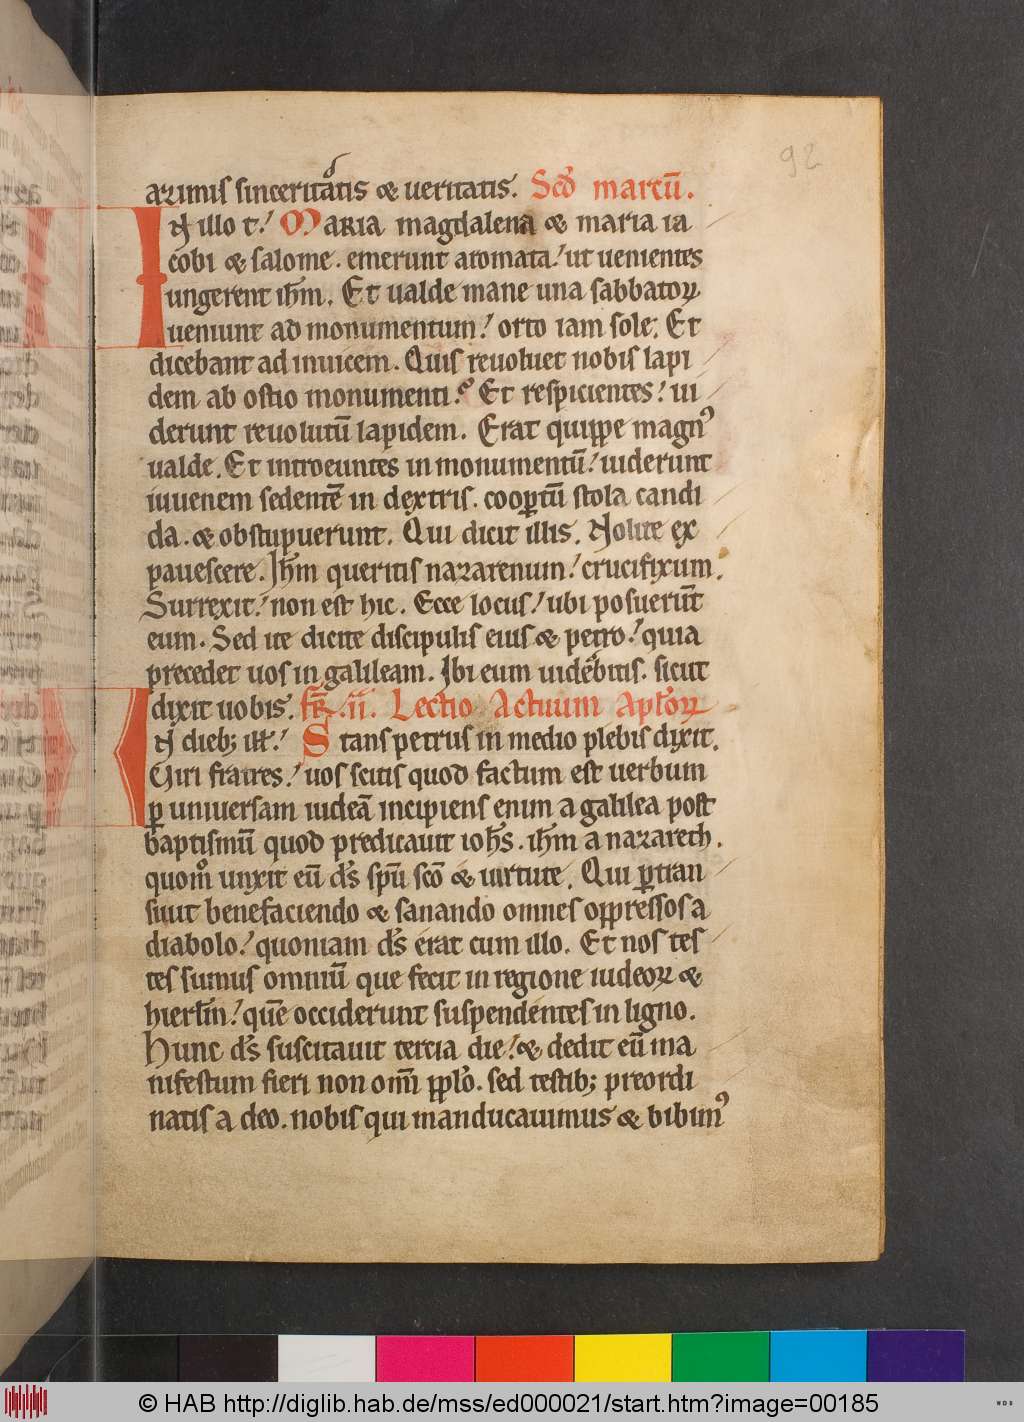 92
azimis sinceritatis & ueritatis. Scd̄m marcū.
IN illo t̄. Maria magdalena & maria ia
cobi & salome. emerunt aromata. ut uenientes
ungerent ihm̄. Et ualde mane una sabbatoꝝ
ueniunt ad monumentum. orto iam sole. Et
dicebant ad inuicem. Quis reuoluet nobis lapi
dem ab ostio monumenti? Et respicientes. ui
derunt reuolutū lapidem. Erat quippe magnꝰ
ualde. Et introeuntes in monumentū. uiderunt
iuuenem sedentē in dextris. coopꝑtū stola candi
da. & obstupuerunt. Qui dicit illis. Nolite ex
pauescere. Ihm̄ queritis nazarenum. crucifixum.
Surrexit. non est hic. Ecce locus. ubi posuerūt
eum. Sed ite dicite discipulis eius & petro. quia
precedet uos in galileam. Ibi eum uidebitis. sicut
dixit uobis. fr̄. ii. Lectio Actuum Apl̄oꝝ
IN dieb; ill̄. Stans petrus in medio plebis dixit.
Uiri fratres. uos scitis quod factum est uerbum
ꝑ uniuersam iudeā incipiens enim a galilea post
baptismū quod predicauit ioh̄s. ihm̄ a nazareth.
quom̊ unxit eū d̄s spū scō & uirtute. Qui ꝑtran
siuit benefaciendo & sanando omnes oppressos a
diabolo. quoniam d̄s erat cum illo. Et nos tes
tes sumus omniū que fecit in regione iudeoꝝ &
hierl̄m. quē occiderunt suspendentes in ligno.
Hunc d̄s suscitauit tercia die. & dedit eū ma
nifestum fieri non om̄i ppl̄o. sed testib; preordi
natis a deo. nobis qui manducauimus & bibimꝰ
© HAB http://diglib.hab.de/mss/ed000021/start.htm?image=00185